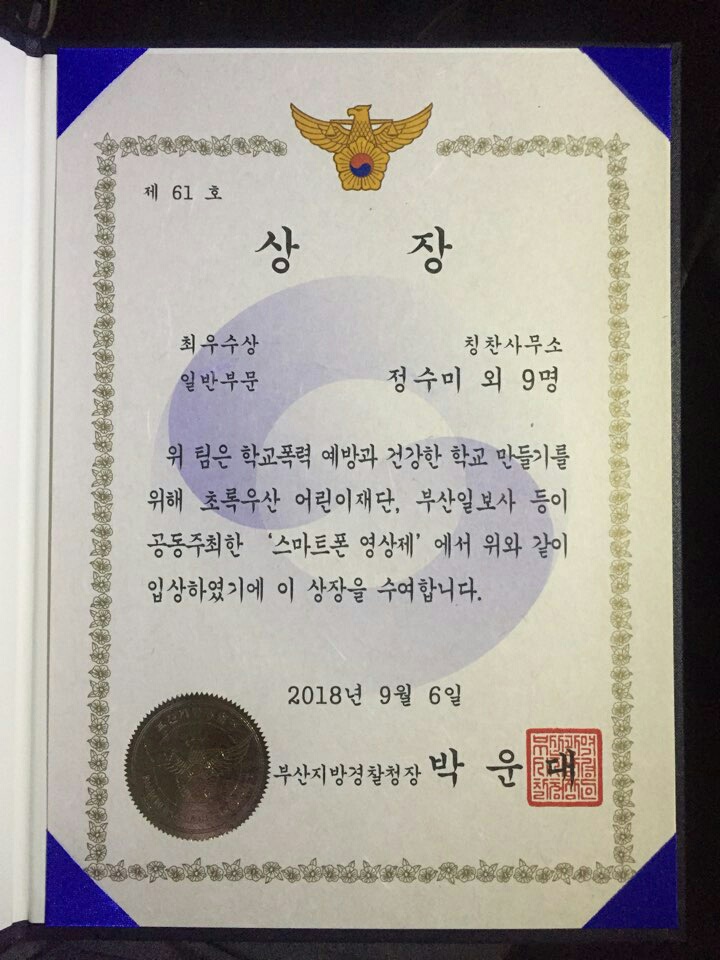 제 61 호
상 장
최우수상 칭찬사무소
일반부문 정수미 외 9명
위 팀은 학교폭력 예방과 건강한 학교 만들기를
위해 초록우산 어린이재단, 부산일보사 등이
공동주최한 '스마트폰 영상제' 에서 위와 같이
입상하였기에 이 상장을 수여합니다.
2018년 9월 6일
부산지방경찰청장 박 운 대